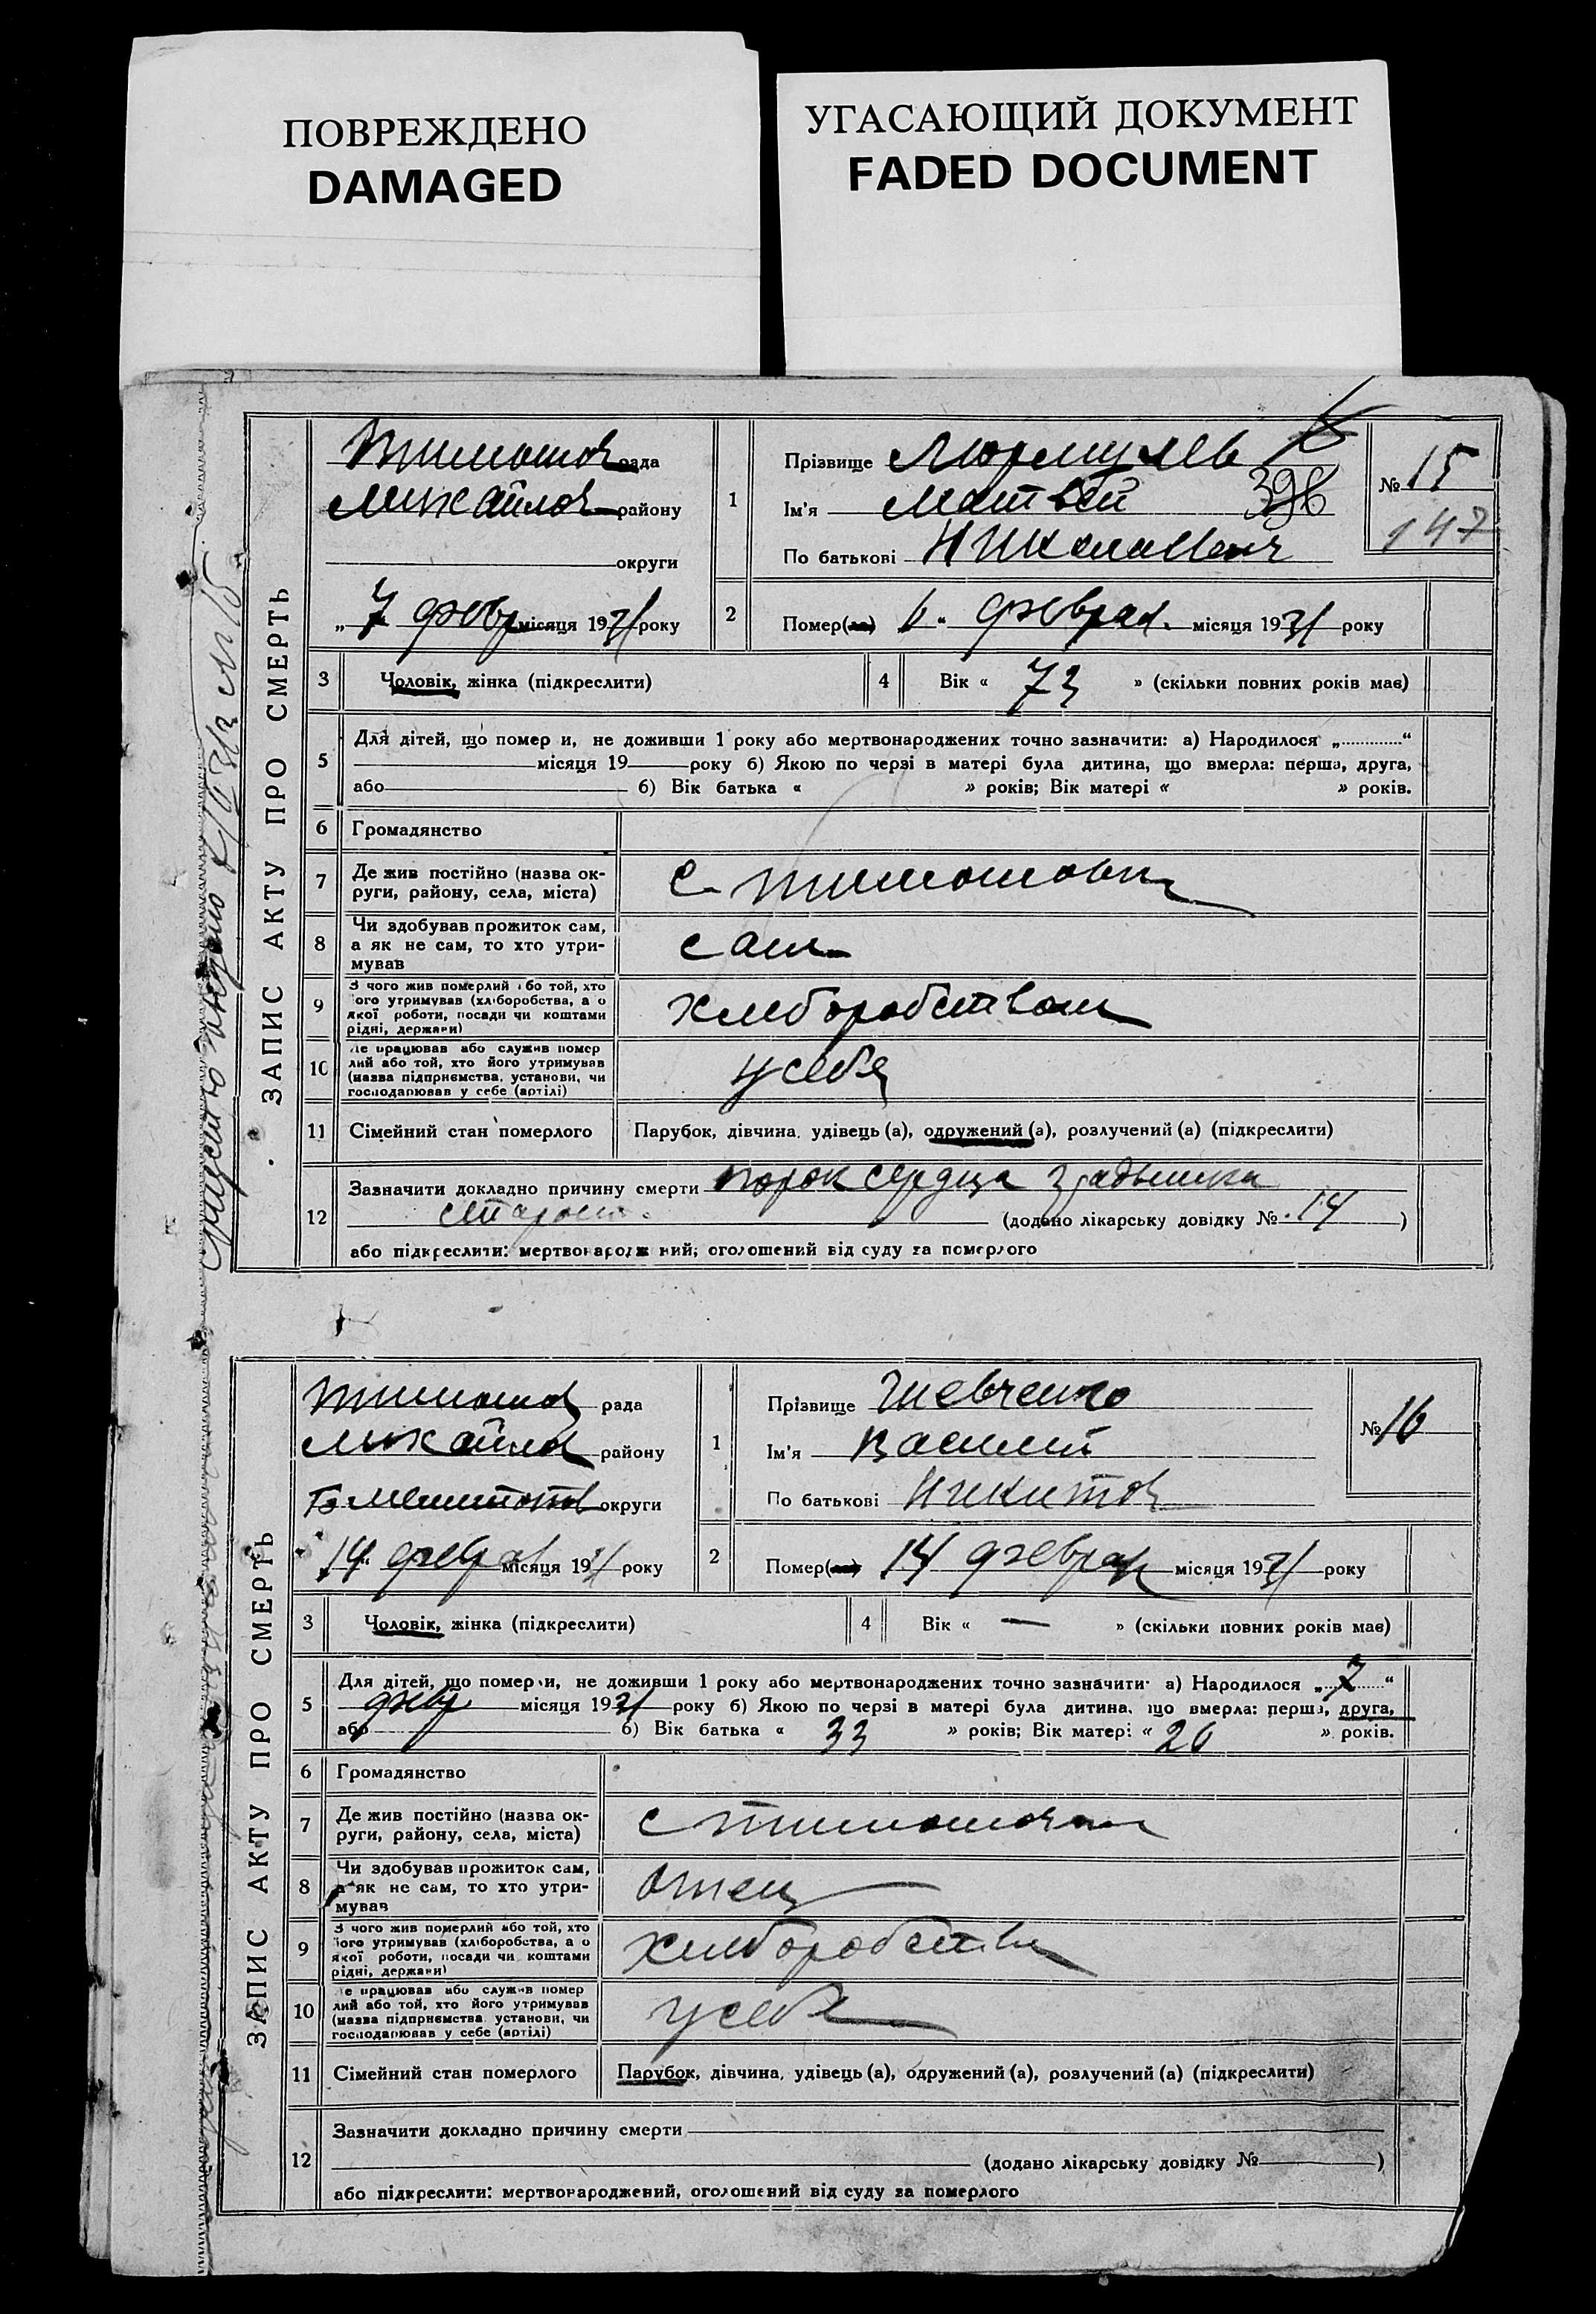 ПОВРЕЖДЕНО
DAMAGED
УГАСАЮЩИЙ ДОКУМЕНТ
FADED DOCUMENT
ЗАПИС АКТУ ПРО СМЕРТЬ
Тимошов рада
Михайлов району
округи
„ 7 февр місяця 1931 року
1
Прізвище
Ім'я Матвей 398
По батькові Николаевич
№ 15
147
2 Помер(ла) 6 " феврал. місяця 1931 року
3 Чоловік, жінка (підкреслити)
4 Вік « 73 » (скільки повних років мав)
5 Для дітей, що померли, не доживши 1 року або мертвонароджених точно зазначити: а) Народилося „ “
місяця 19 року б) Якою по черзі в матері була дитина, що вмерла: перша, друга,
або б) Вік батька « » років; Вік матері « » років.
6 Громадянство
7 Де жив постійно (назва округи, району, села, міста)
с. Тимошовки
8 Чи здобував прожиток сам,
а як не сам, то хто утримував
сам
9 З чого жив померлий або той, хто
його утримував (хліборобства, а о
якої роботи, посади чи коштами
рідні, держави)
хлеборобством
10 Де працював або служив помер
лий або той, хто його утримував
(назва підприємства, установи, чи
господарював у себе (артілі)
у себя
11 Сімейний стан померлого
Парубок, дівчина, удівець (а), одружений (а), розлучений (а) (підкреслити)
12 Зазначити докладно причину смерти порок сердца
(додано лікарську довідку № 14 )
або підкреслити: мертвонароджений; оголошений від суду за померлого
ЗАПИС АКТУ ПРО СМЕРТЬ
Тимошов рада
Михайлов району
округи
14 " феврал місяця 1931 року
1
Прізвище Шевченко
Ім'я Василий
По батькові Никитов
№ 16
2 Помер(ла) 14 феврал місяця 1931 року
3 Чоловік, жінка (підкреслити)
4 Вік « — » (скільки повних років мав)
5 Для дітей, що померли, не доживши 1 року або мертвонароджених точно зазначити: а) Народилося „ 7 “
февр місяця 1931 року б) Якою по черзі в матері була дитина, що вмерла: перша, друга,
або б) Вік батька « 33 » років; Вік матері « 26 » років.
6 Громадянство
7 Де жив постійно (назва округи, району, села, міста)
с Тимошовки
8 Чи здобував прожиток сам,
а як не сам, то хто утримував
отец
9 З чого жив померлий або той, хто
його утримував (хліборобства, а о
якої роботи, посади чи коштами
рідні, держави)
хлеборобства
10 Де працював або служив помер
лий або той, хто його утримував
(назва підприємства, установи, чи
господарював у себе (артілі)
у себя
11 Сімейний стан померлого
Парубок, дівчина, удівець (а), одружений (а), розлучений (а) (підкреслити)
12 Зазначити докладно причину смерти
(додано лікарську довідку № )
або підкреслити: мертвонароджений, оголошений від суду за померлого